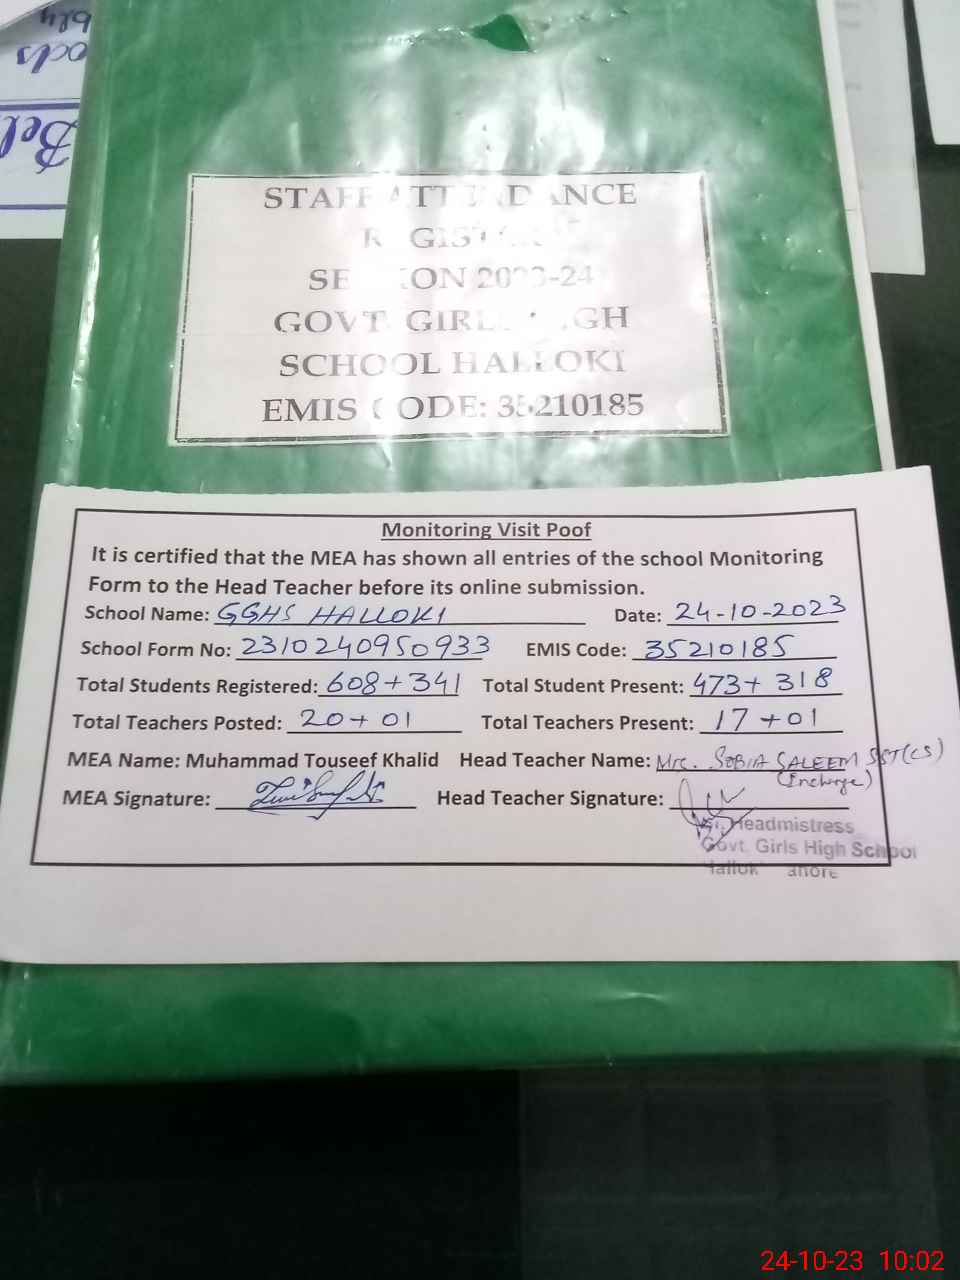 bly
ocls
Bel
STAFF ATTENDANCE
REGISTER
SESSION 2023-24
GOVT. GIRLS HIGH
SCHOOL HALLOKI
EMIS CODE: 35210185
Monitoring Visit Poof
It is certified that the MEA has shown all entries of the school Monitoring
Form to the Head Teacher before its online submission.
School Name: GGHS HALLOKI Date: 24-10-2023
School Form No: 2310240950933 EMIS Code: 35210185
Total Students Registered: 608+341 Total Student Present: 473+ 318
Total Teachers Posted: 20+01 Total Teachers Present: 17+01
MEA Name: Muhammad Touseef Khalid Head Teacher Name: Mrs. SOBIA SALEEM SST(CS)
(Incharge)
MEA Signature: Head Teacher Signature:
Headmistress
Govt. Girls High School
Halloki Lahore
24-10-23 10:02